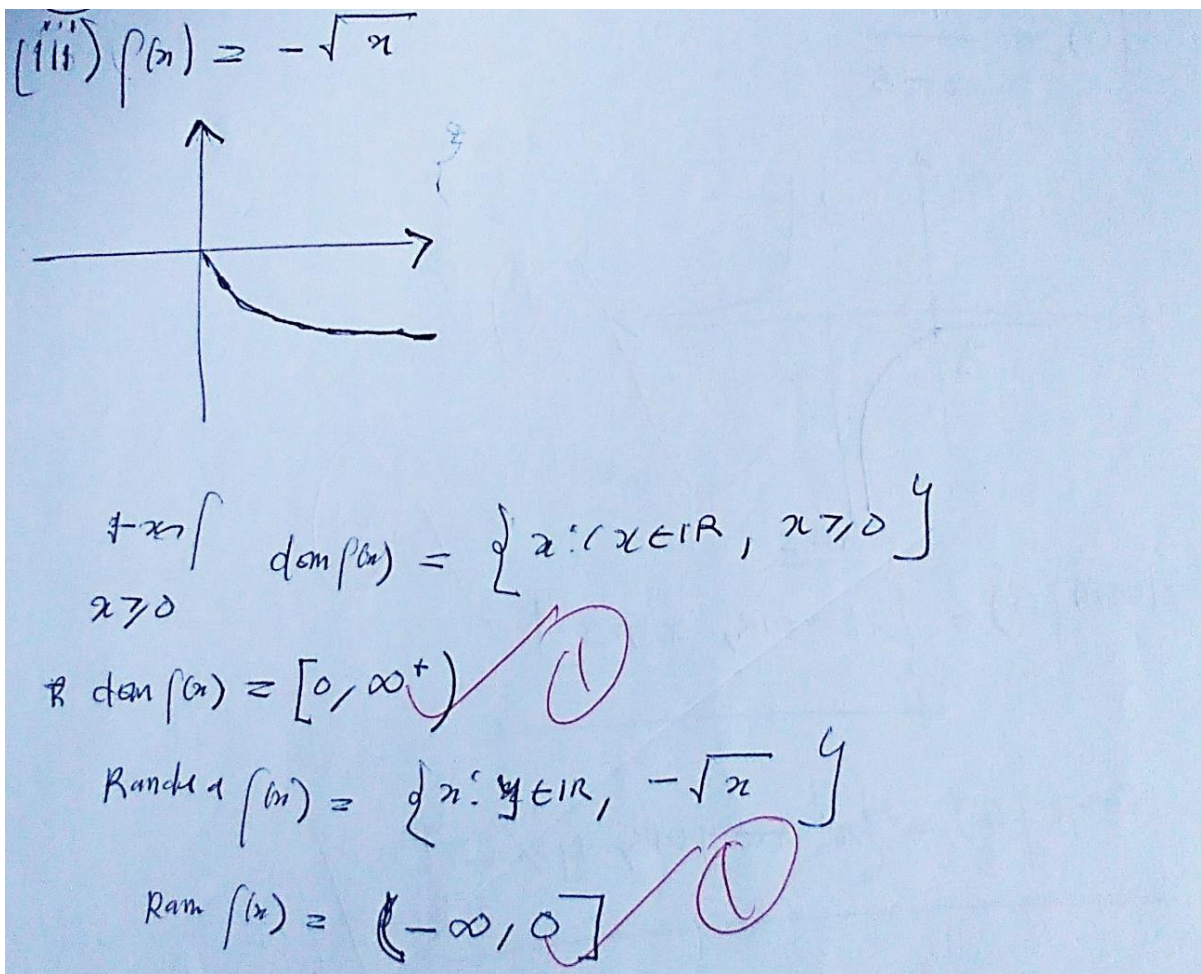 (iii) f(x) = -√x
x ≥ 0
dom f(x) = { x : (x ∈ IR, x ≥ 0 }
dom f(x) = [0, ∞⁺)
①
f(x) = { x : y ∈ IR, -√x }
①
Ran f(x) = (-∞, 0]